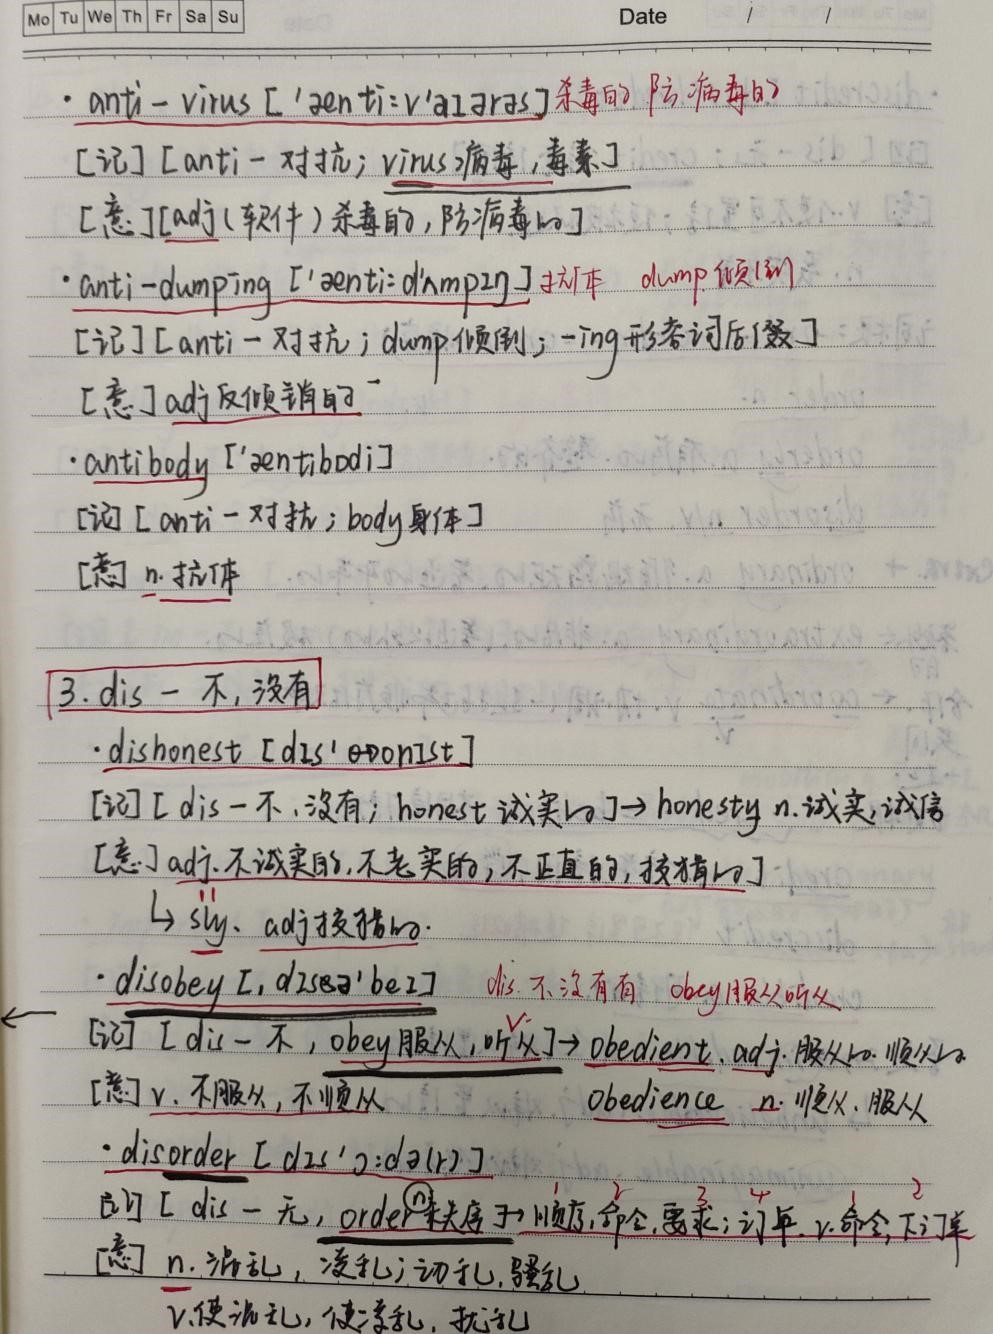 Mo Tu We Th Fr Sa Su Date / /
· anti-virus ['æntiːvaɪərəs] 杀毒的 防病毒的
[记] [anti-对抗; virus病毒,毒素]
[意] [adj(软件)杀毒的,防病毒的]
· anti-dumping ['æntiːdʌmpɪŋ] 抗体 dump 倾倒
[记] [anti-对抗; dump倾倒; -ing形容词后缀]
[意] adj反倾销的
· antibody ['æntibɒdi]
[记] [anti-对抗; body身体]
[意] n.抗体
3. dis- 不,没有
· dishonest [dɪs'ɒnɪst]
[记] [dis-不,没有; honest 诚实的] → honesty n.诚实,诚信
[意] adj.不诚实的,不老实的,不正直的,狡猾的]
↳ sly. adj狡猾的.
· disobey [ˌdɪsə'beɪ] dis.不没有有 obey服从听从
[记] [dis-不,obey服从,听从] v. → obedient. adj.服从的.顺从的
[意] v.不服从,不顺从 obedience n.顺从.服从
· disorder [dɪs'ɔːdə(r)]
[记] [dis-无,order n → 1顺序,2命令,3要求;4订单. v.1命令,2下订单
[意] n.混乱,凌乱;动乱,骚乱
v.使混乱,使凌乱,扰乱